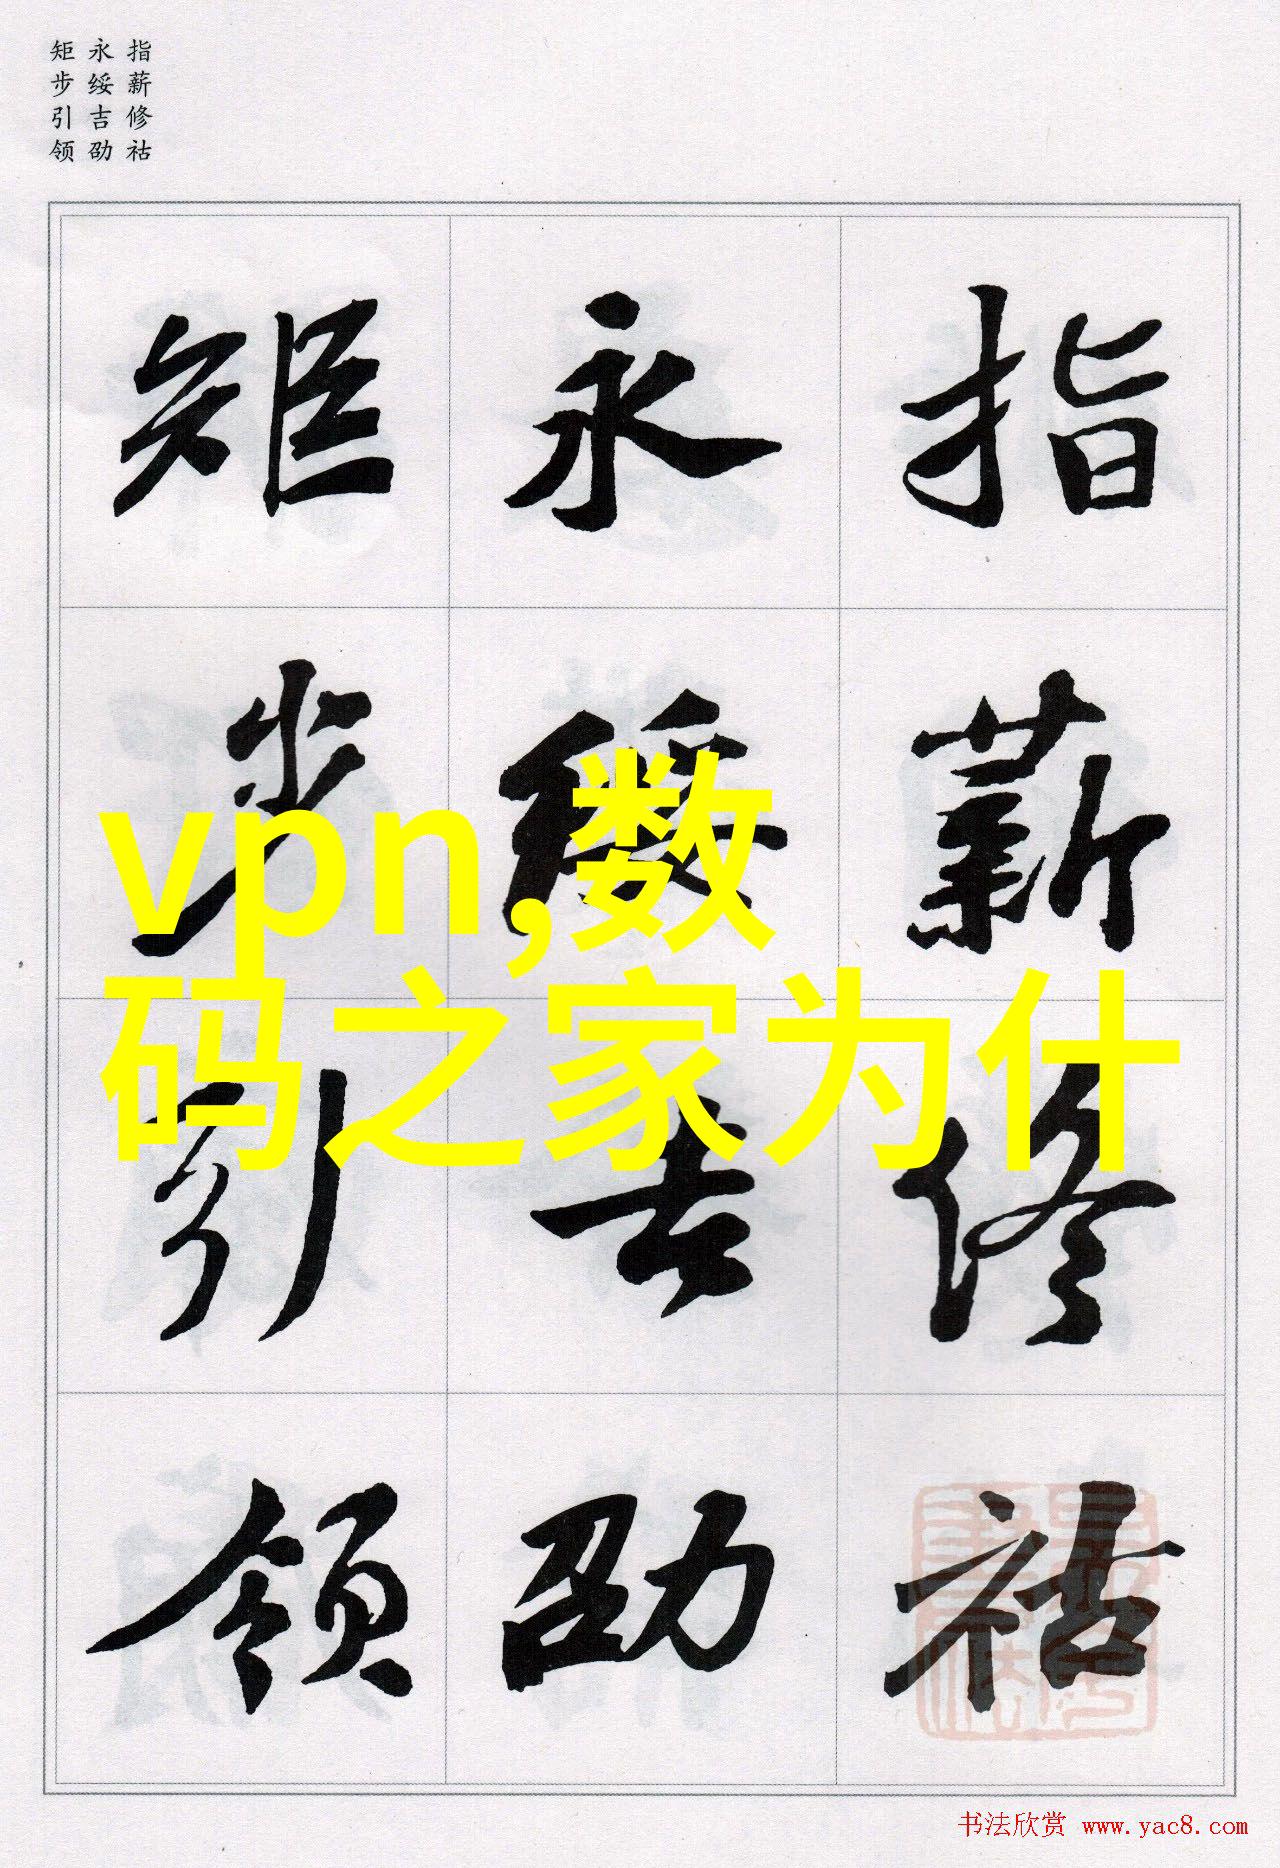 指薪修祜
永绥吉劭
矩步引领
指薪修祜
永绥吉劭
矩步引领
vpn,数
码之家为什
书法欣赏 www.yac8.com